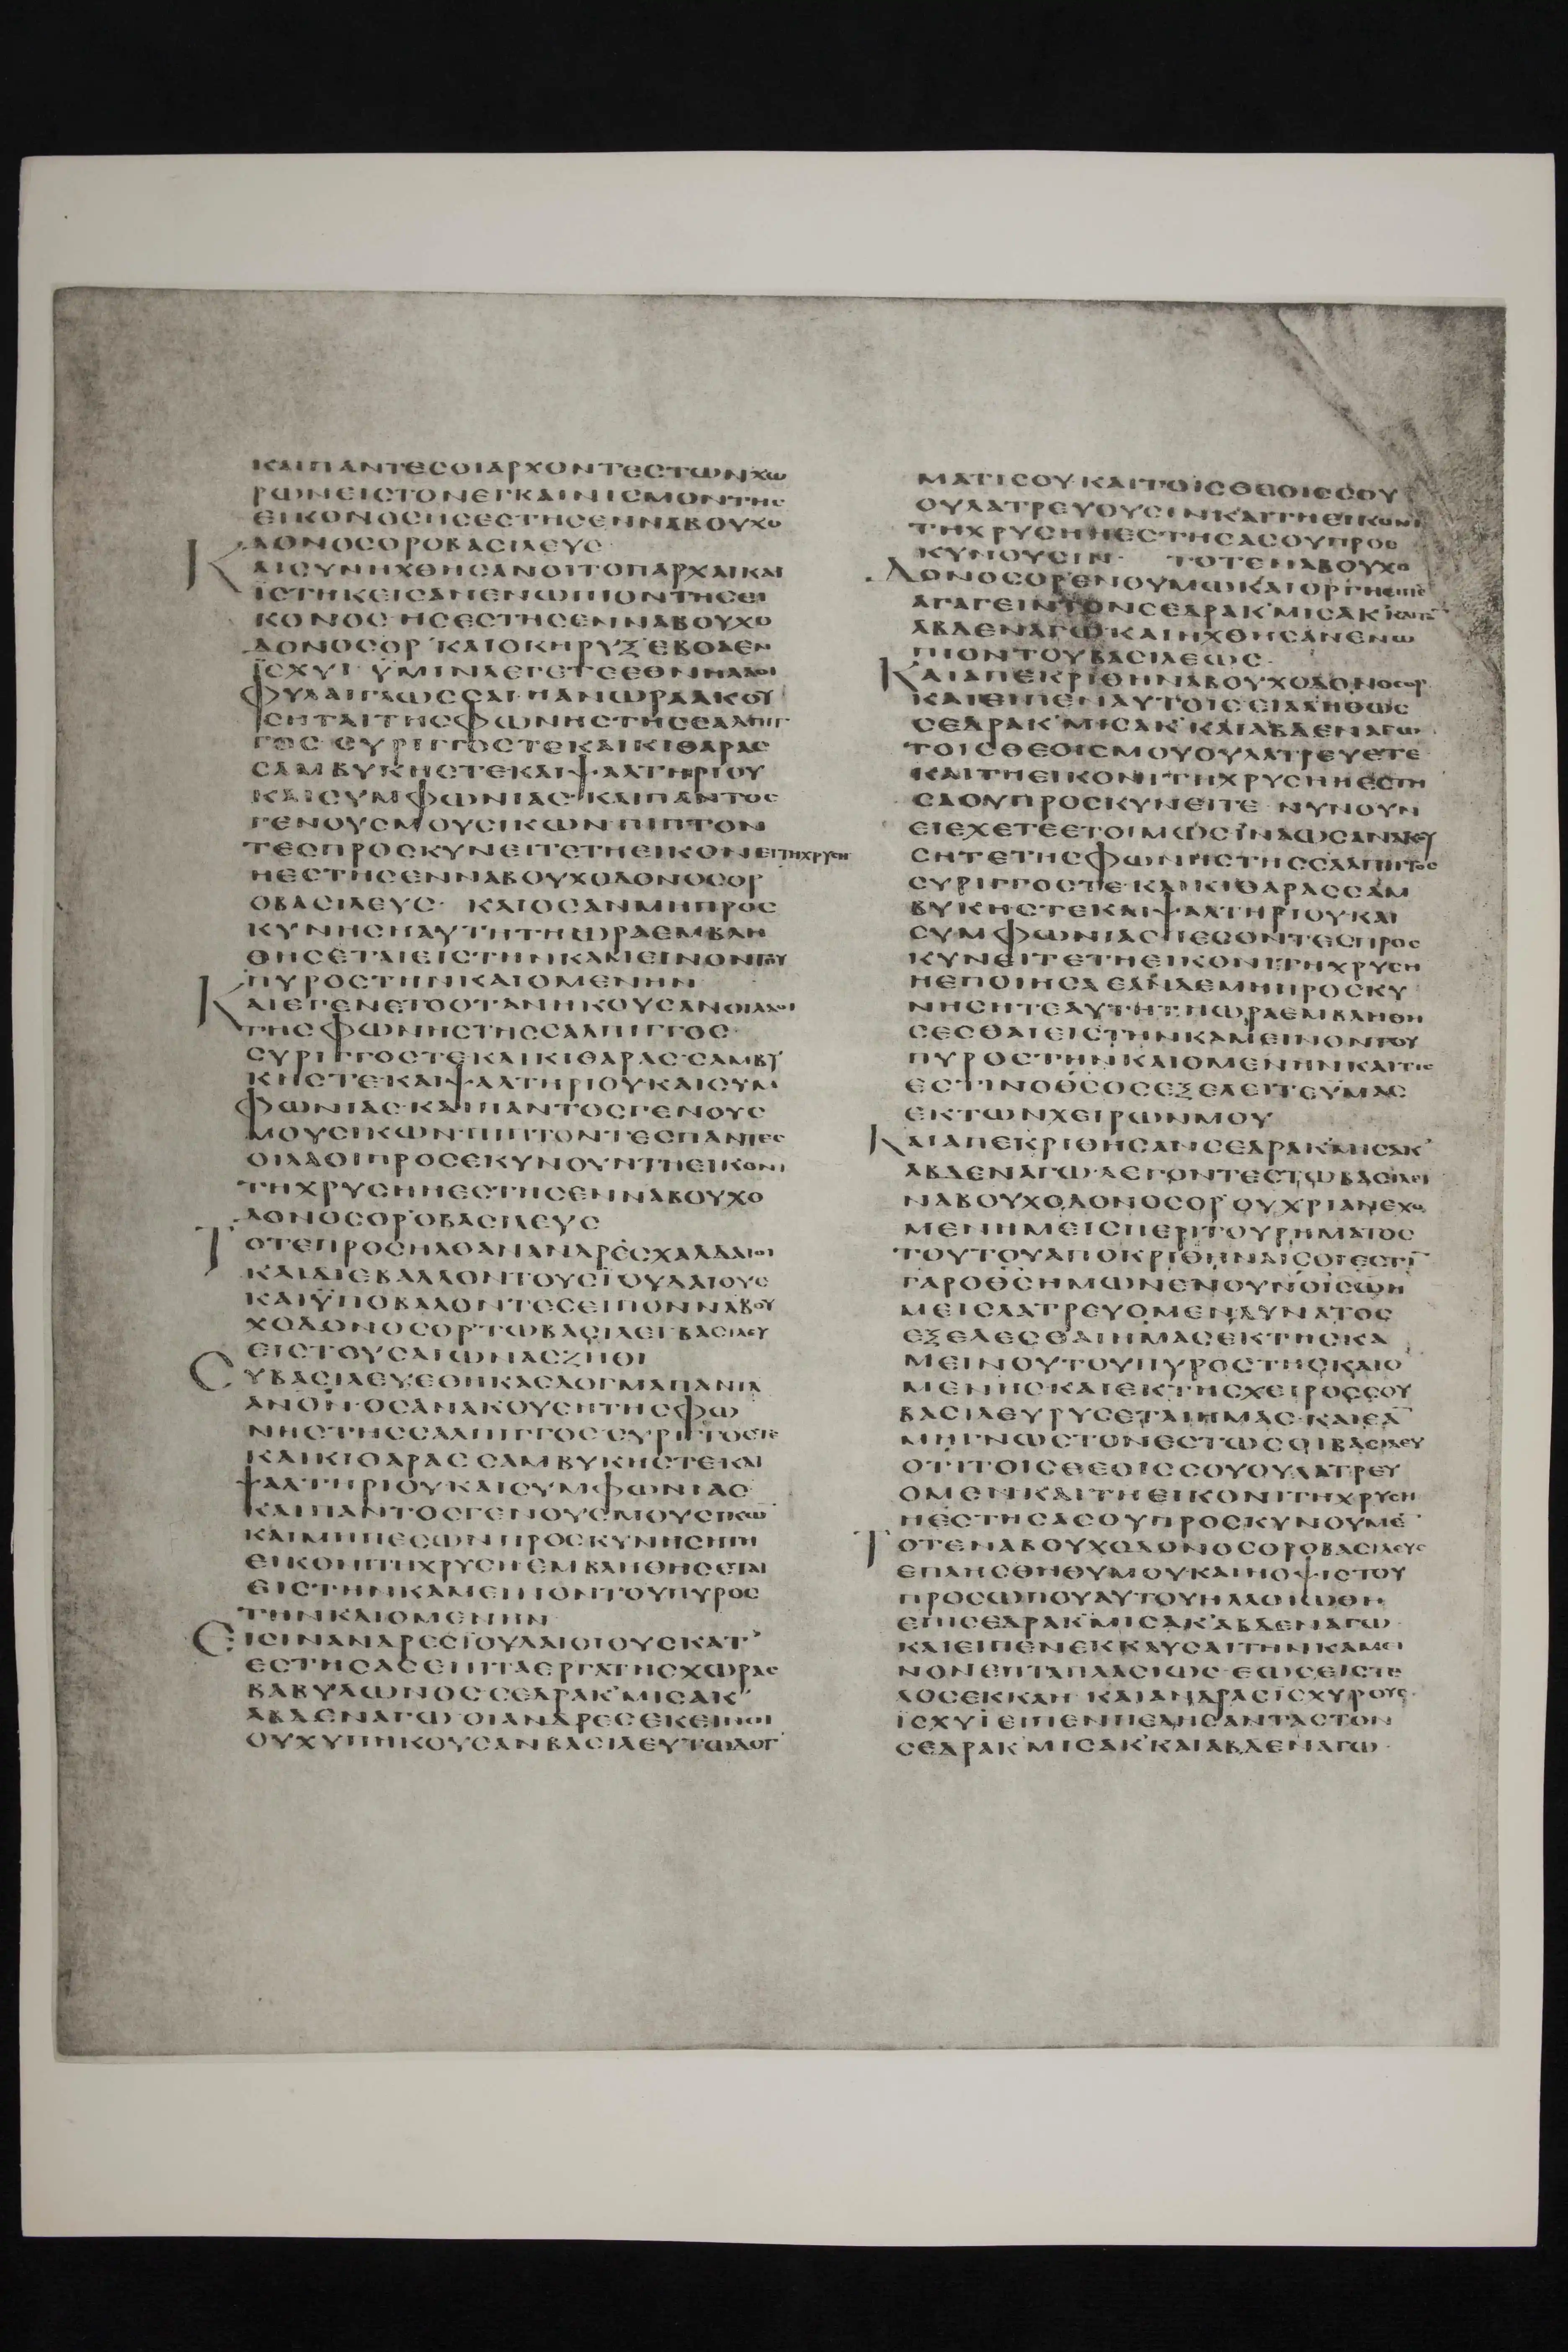 ΚΑΙΠΑΝΤΕСΟΙΑΡΧΟΝΤΕСΤΩΝΧΩ
ΡΩΝΕΙСΤΟΝΕΓΚΑΙΝΙСΜΟΝΤΗС
ΕΙΚΟΝΟСΗСΕСΤΗСΕΝΝΑΒΟΥΧΟ
ΔΟΝΟСΟΡΟΒΑСΙΛΕΥС
ΚΑΙСΥΝΗΧΘΗСΑΝΟΙΤΟΠΑΡΧΑΙΚΑΙ
ΙСΤΗΚΕΙСΑΝΕΝΩΠΙΟΝΤΗСΕΙ
ΚΟΝΟС·ΗСΕСΤΗСΕΝΝΑΒΟΥΧΟ
ΔΟΝΟСΟΡ ΚΑΙΟΚΗΡΥΞΕΒΟΑΕΝ
ΙСΧΥΙ ΫΜΙΝΛΕΓΕΤΕΕΘΝΗΛΑΟΙ
ΦΥΛΑΙΓΛΩССΑΙ·ΗΑΝΩΡΑΑΚΟΥ
СΗΤΑΙΤΗСΦΩΝΗСΤΗССΑΛΠΙΓ
ΓΟС·СΥΡΙΓΓΟСΤΕΚΑΙΚΙΘΑΡΑС
СΑΜΒΥΚΗСΤΕΚΑΙΨΑΛΤΗΡΙΟΥ
ΚΑΙСΥΜΦΩΝΙΑС·ΚΑΙΠΑΝΤΟС
ΓΕΝΟΥСΜΟΥСΙΚΩΝ·ΠΙΠΤΟΝ
ΤΕСΠΡΟСΚΥΝΕΙΤΕΤΗΕΙΚΟΝΕΙΤΗΧΡΥСΗ
ΗΕСΤΗСΕΝΝΑΒΟΥΧΟΔΟΝΟСΟΡ
ΟΒΑСΙΛΕΥС· ΚΑΙΟСΑΝΜΗΠΡΟС
ΚΥΝΗСΗΑΥΤΗΤΗΩΡΑΕΜΒΛΗ
ΘΗСΕΤΑΙΕΙСΤΗΝΚΑΜΕΙΝΟΝΤΟΥ
ΠΥΡΟСΤΗΝΚΑΙΟΜΕΝΗΝ
ΚΑΙΕΓΕΝΕΤΟΟΤΑΝΗΚΟΥСΑΝΟΙΛΑΟΙ
ΤΗСΦΩΝΗСΤΗССΑΛΠΙΓΓΟС·
СΥΡΙΓΓΟСΤΕΚΑΙΚΙΘΑΡΑС·СΑΜΒΥ
ΚΗСΤΕΚΑΙΨΑΛΤΗΡΙΟΥΚΑΙСΥΜ
ΦΩΝΙΑС·ΚΑΙΠΑΝΤΟСΓΕΝΟΥС
ΜΟΥСΙΚΩΝ·ΠΙΠΤΟΝΤΕСΠΑΝΤΕС
ΟΙΛΑΟΙΠΡΟСΕΚΥΝΟΥΝΤΗΕΙΚΟΝΙ
ΤΗΧΡΥСΗΗΕСΤΗСΕΝΝΑΒΟΥΧΟ
ΔΟΝΟСΟΡ·ΟΒΑСΙΛΕΥС
ΤΟΤΕΠΡΟСΗΛΘΑΝΑΝΔΡΕСΧΑΛΔΑΙΟΙ
ΚΑΙΔΙΕΒΑΛΛΟΝΤΟΥСΙΟΥΔΑΙΟΥС
ΚΑΙΫΠΟΒΑΛΟΝΤΕСΕΙΠΟΝΝΑΒΟΥ
ΧΟΔΟΝΟСΟΡΤΩΒΑСΙΛΕΙ·ΒΑСΙΛΕΥ
ΕΙСΤΟΥСΑΙΩΝΑСΖΗΘΙ
СΥΒΑСΙΛΕΥ·ΕΘΗΚΑСΔΟΓΜΑΠΑΝΤΑ
ΑΝΟΝ·ΟСΑΝΑΚΟΥСΗΤΗСΦΩ
ΝΗСΤΗССΑΛΠΙΓΓΟС·СΥΡΙΓΓΟСΤΕ
ΚΑΙΚΙΘΑΡΑС·СΑΜΒΥΚΗСΤΕΚΑΙ
ΨΑΛΤΗΡΙΟΥΚΑΙСΥΜΦΩΝΙΑС
ΚΑΙΠΑΝΤΟСΓΕΝΟΥСΜΟΥСΙΚΩ
ΚΑΙΜΗΠΕСΩΝΠΡΟСΚΥΝΗСΗΤΗ
ΕΙΚΟΝΙΤΗΧΡΥСΗ·ΕΜΒΛΗΘΗСΕΤΑΙ
ΕΙСΤΗΝΚΑΜΕΙΝΟΝΤΟΥΠΥΡΟС
ΤΗΝΚΑΙΟΜΕΝΗΝ
ΕΙСΙΝΑΝΔΡΕСΙΟΥΔΑΙΟΙΟΥСΚΑΤ
ΕСΤΗСΑСΕΠΙΤΑΕΡΓΑΤΗСΧΩΡΑС
ΒΑΒΥΛΩΝΟС·СΕΔΡΑΚ·ΜΙСΑΚ
ΑΒΔΕΝΑΓΩ·ΟΙΑΝΔΡΕСΕΚΕΙΝΟΙ
ΟΥΧΥΠΗΚΟΥСΑΝΒΑСΙΛΕΥΤΩΔΟΓ
ΜΑΤΙСΟΥ·ΚΑΙΤΟΙСΘΕΟΙССΟΥ
ΟΥΛΑΤΡΕΥΟΥСΙΝΚΑΙΤΗΕΙΚΟΝΙ
ΤΗΧΡΥСΗΗΕСΤΗСΑСΟΥΠΡΟС
ΚΥΝΟΥСΙΝ· ΤΟΤΕΝΑΒΟΥΧΟ
ΔΟΝΟСΟΡΕΝΟΥΜΩΚΑΙΟΡΓΗΕΙΠΕ
ΑΓΑΓΕΙΝΤΟΝСΕΔΡΑΚ·ΜΙСΑΚ·ΚΑΙΤ
ΑΒΔΕΝΑΓΩ·ΚΑΙΗΧΘΗСΑΝΕΝΩ
ΠΙΟΝΤΟΥΒΑСΙΛΕΩС·
ΚΑΙΑΠΕΚΡΙΘΗΝΑΒΟΥΧΟΔΟΝΟСΟΡ
ΚΑΙΕΙΠΕΝΑΥΤΟΙС·ΕΙΑΛΗΘΩС
СΕΔΡΑΚ·ΜΙСΑΚ·ΚΑΙΑΒΔΕΝΑΓΩ
ΤΟΙСΘΕΟΙСΜΟΥΟΥΛΑΤΡΕΥΕΤΕ
ΚΑΙΤΗΕΙΚΟΝΙΤΗΧΡΥСΗΗΕСΤΗ
СΑΟΥΠΡΟСΚΥΝΕΙΤΕ ΝΥΝΟΥΝ
ΕΙΕΧΕΤΕΕΤΟΙΜΩСΪΝΑΩСΑΝΑΚΟΥ
СΗΤΕΤΗСΦΩΝΗСΤΗССΑΛΠΙΓΓΟС
СΥΡΙΓΓΟСΤΕ·ΚΑΙΚΙΘΑΡΑССΑΜ
ΒΥΚΗСΤΕΚΑΙΨΑΛΤΗΡΙΟΥΚΑΙ
СΥΜΦΩΝΙΑСΠΕСΟΝΤΕСΠΡΟС
ΚΥΝΕΙΤΕΤΗΕΙΚΟΝΙΤΗΧΡΥСΗ
ΗΕΠΟΙΗСΑ·ΕΑΝΔΕΜΗΠΡΟСΚΥ
ΝΗСΗΤΕΑΥΤΗΤΗΩΡΑΕΜΒΛΗΘΗ
СΕСΘΑΙΕΙСΤΗΝΚΑΜΕΙΝΟΝΤΟΥ
ΠΥΡΟСΤΗΝΚΑΙΟΜΕΝΗΝ·ΚΑΙΤΙС
ΕСΤΙΝΟΘСΟСΕΞΕΛΕΙΤΕΥΜΑС
ΕΚΤΩΝΧΕΙΡΩΝΜΟΥ
ΚΑΙΑΠΕΚΡΙΘΗСΑΝСΕΔΡΑΚ·ΜΙСΑΚ
ΑΒΔΕΝΑΓΩ·ΛΕΓΟΝΤΕСΤΩΒΑСΙΛΕΙ
ΝΑΒΟΥΧΟΔΟΝΟСΟΡ·ΟΥΧΡΙΑΝΕΧΟ
ΜΕΝΗΜΕΙСΠΕΡΙΤΟΥΡΗΜΑΤΟС
ΤΟΥΤΟΥΑΠΟΚΡΙΘΗΝΑΙСΟΙ·ΕСΤΙ
ΓΑΡΟΘСΗΜΩΝΕΝΟΥΝΟΙСΩΗ
ΜΕΙСΛΑΤΡΕΥΟΜΕΝΔΥΝΑΤΟС
ΕΞΕΛΕСΘΑΙΗΜΑСΕΚΤΗСΚΑ
ΜΕΙΝΟΥΤΟΥΠΥΡΟСΤΗСΚΑΙΟ
ΜΕΝΗС·ΚΑΙΕΚΤΗСΧΕΙΡΟССΟΥ
ΒΑСΙΛΕΥΡΥСΕΤΑΙΗΜΑС·ΚΑΙΕΑ
ΜΗΓΝΩСΤΟΝΕСΤΩСΟΙΒΑСΙΛΕΥ
ΟΤΙΤΟΙСΘΕΟΙССΟΥΟΥΛΑΤΡΕΥ
ΟΜΕΝΚΑΙΤΗΕΙΚΟΝΙΤΗΧΡΥСΗ
ΗΕСΤΗСΑСΟΥΠΡΟСΚΥΝΟΥΜΕ
ΤΟΤΕΝΑΒΟΥΧΟΔΟΝΟСΟΡΟΒΑСΙΛΕΥС
ΕΠΛΗСΘΗΘΥΜΟΥΚΑΙΗΟΨΙСΤΟΥ
ΠΡΟСΩΠΟΥΑΥΤΟΥΗΛΛΟΙΩΘΗ
ΕΠΙСΕΔΡΑΚ·ΜΙСΑΚ·ΑΒΔΕΝΑΓΩ·
ΚΑΙΕΙΠΕΝΕΚΚΑΥСΑΙΤΗΝΚΑΜΕΙ
ΝΟΝΕΠΤΑΠΛΑСΙΩС·ΕΩСΕΙСΤΕ
ΛΟСΕΚΚΑΗ ΚΑΙΑΝΔΡΑСΙСΧΥΡΟΥС·
ΪСΧΥΪΕΙΠΕΝΠΕΔΗСΑΝΤΑСΤΟΝ
СΕΔΡΑΚ·ΜΙСΑΚ·ΚΑΙΑΒΔΕΝΑΓΩ·